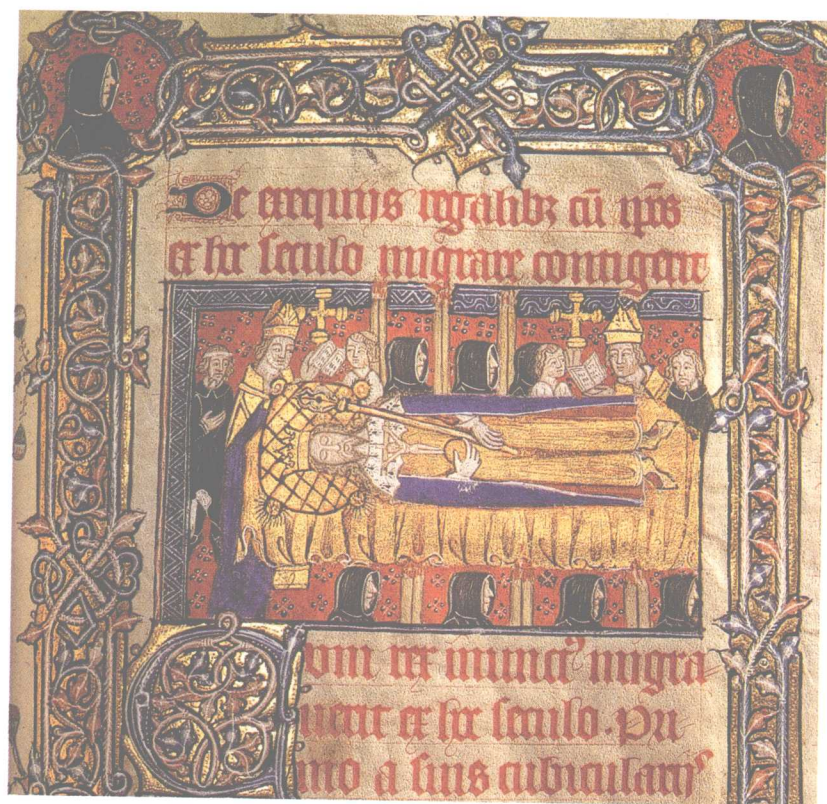 De exequijs regalibꝫ cū ip̄os
ex hͨ seculo migrare contigerit
Cum rex inunctꝰ migra-
uerit ex hͨ seculo. Pri
mo a suis cubicularijs